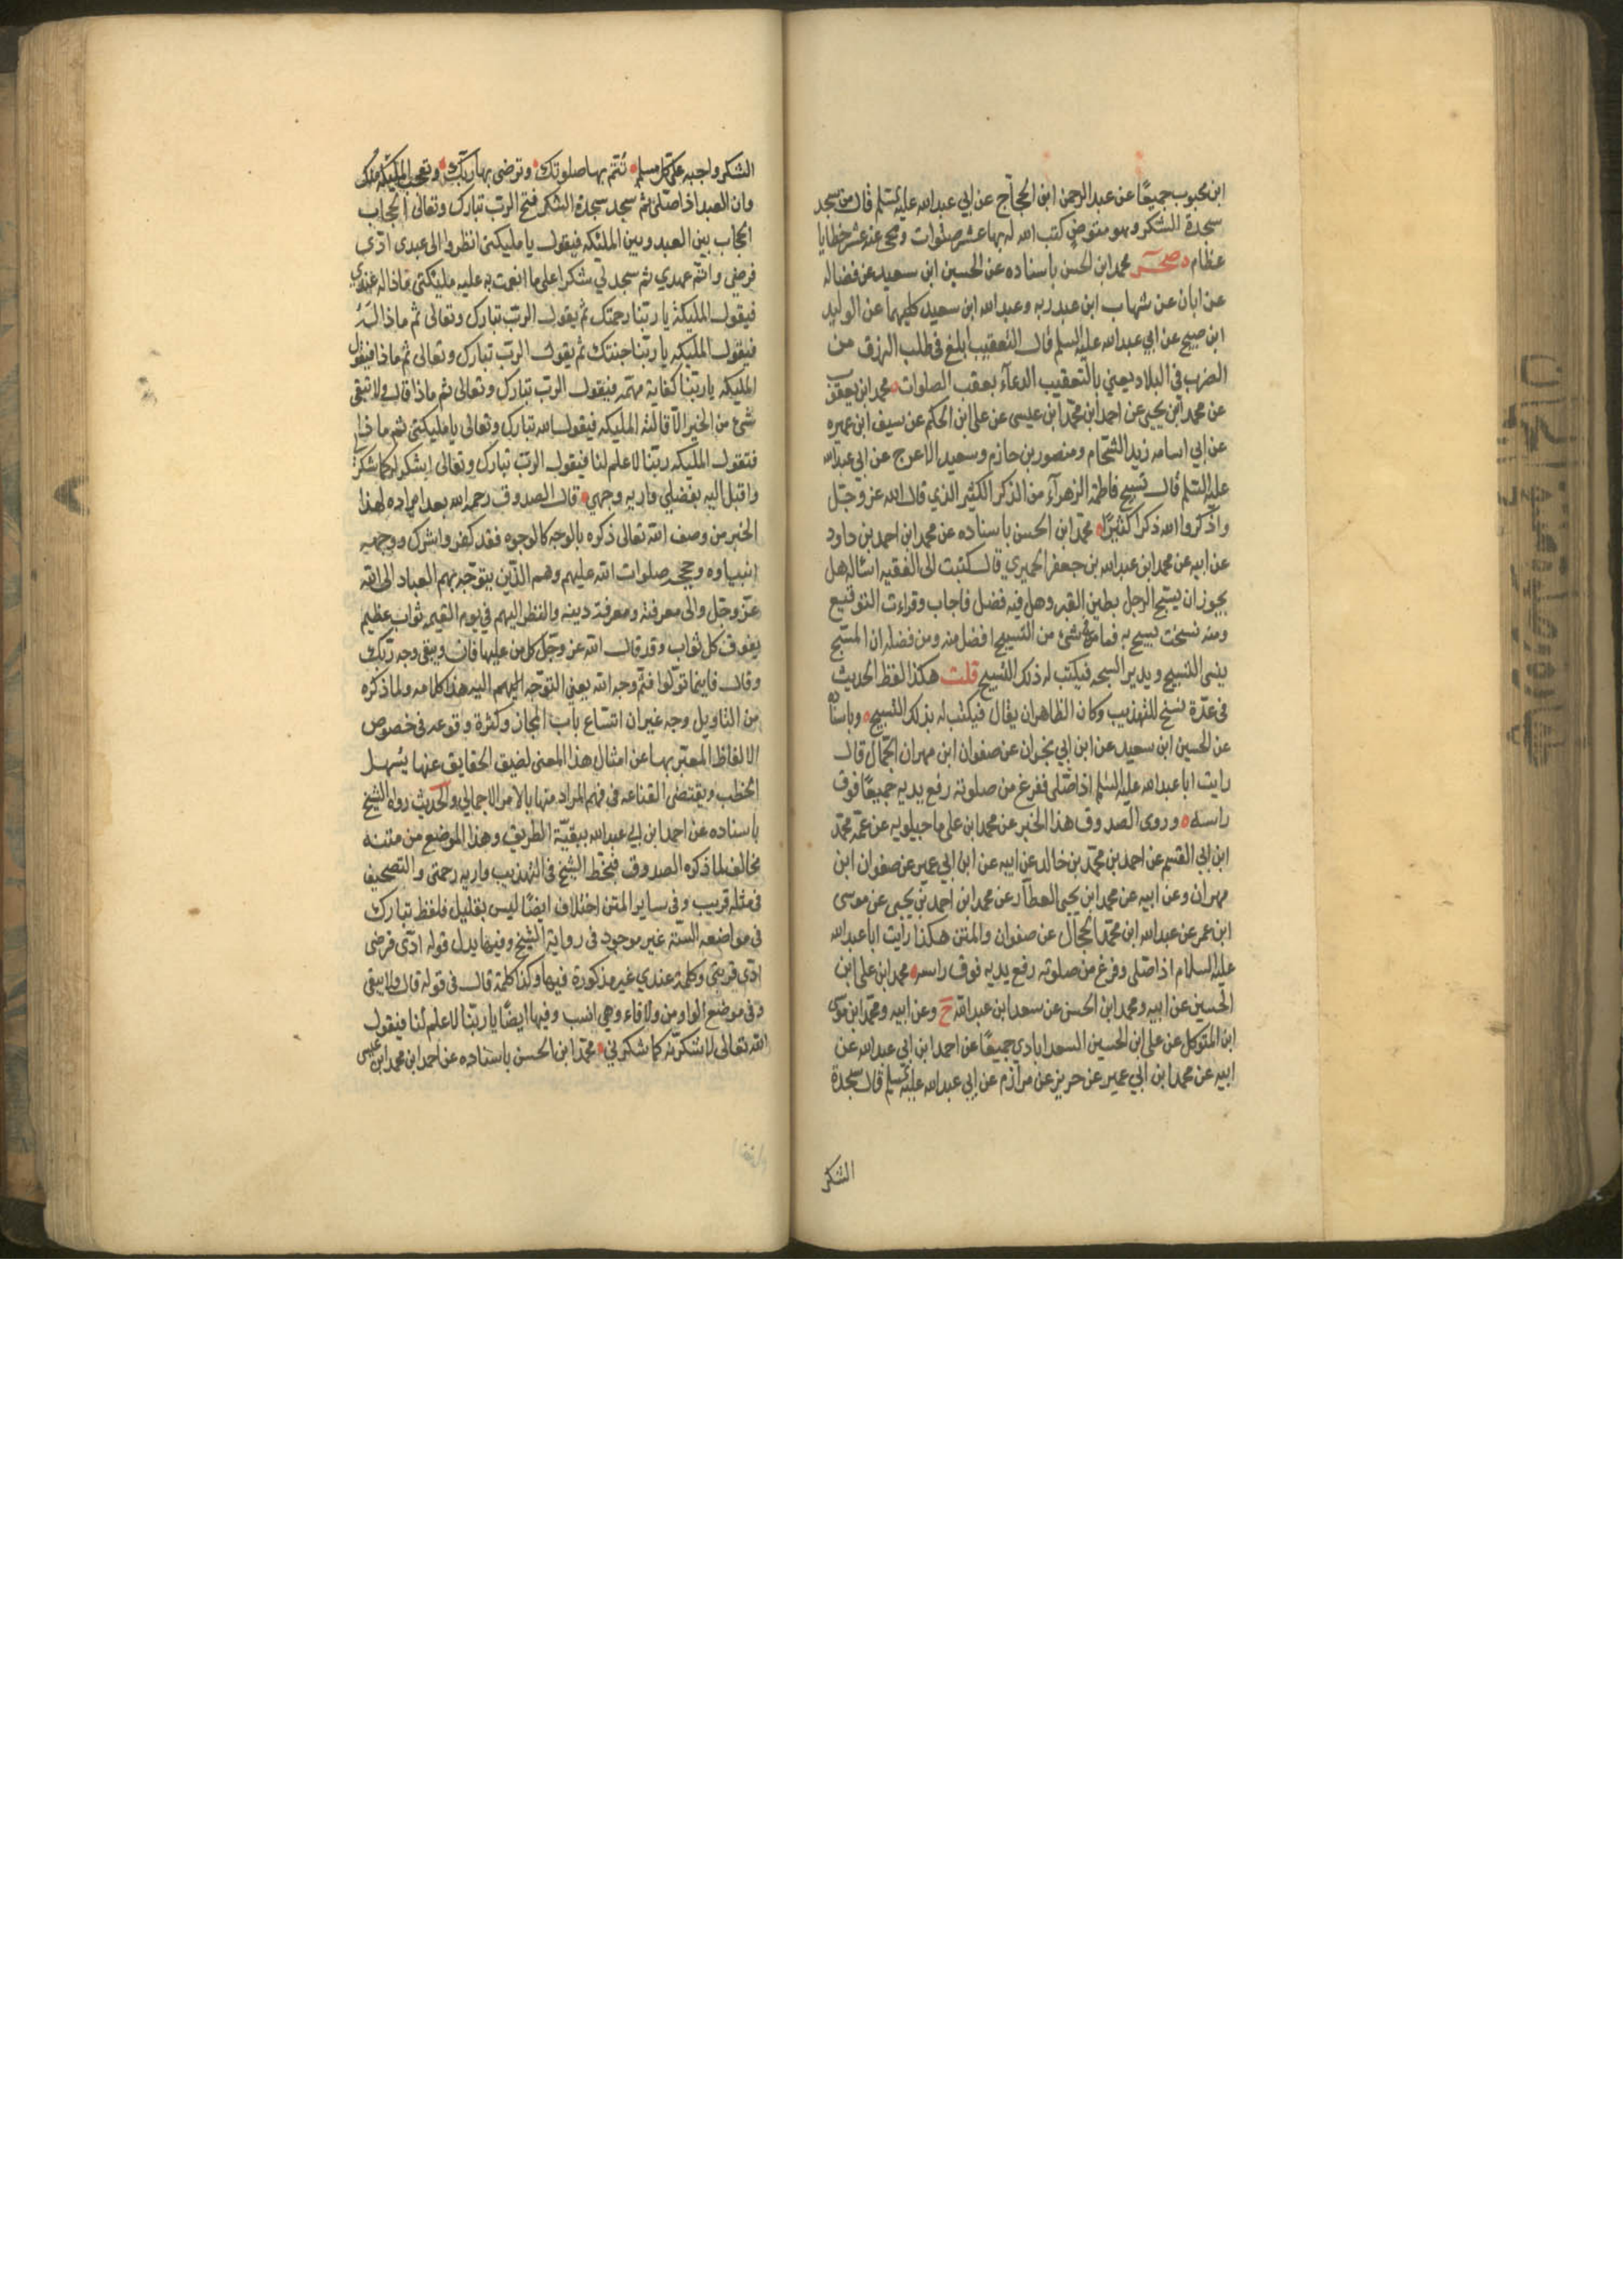 ابن محبوب جميعًا عن عبد الرحمن ابن الحجاج عن ابي عبد الله عليه السلم قال من سجد
سجدة الشكر وهو متوضٍ كتب الله له بها عشر صلوات ومحى عنه عشر خطايا
عظام صحر محمد ابن الحسن باسناده عن الحسين ابن سعيد عن فضاله
عن ابان عن شهاب ابن عبد ربه وعبد الله ابن سعيد كليهما عن الوليد
ابن صبيح عن ابي عبد الله عليه السلم قال التعقيب ابلغ في طلب الرزق من
الضرب في البلاد يعني بالتعقيب الدعاء بعقب الصلوات محمد ابن يعقوب
عن محمد ابن يحيى عن احمد ابن محمد ابن عيسى عن علي ابن الحكم عن سيف ابن عميره
عن ابي اسامه زيد الشحام ومنصور بن حازم وسعيد الاعرج عن ابي عبد الله
عليه السلم قال تسبيح فاطمة الزهرآء من الذكر الكثير الذي قال الله عز وجل
واذكروا الله ذكرا كثيرًا محمد ابن الحسن باسناده عن محمد ابن احمد بن داود
عن ابيه عن محمد ابن عبد الله بن جعفر الحميري قال كتبت الى الفقيه اساله هل
يجوز ان يسبح الرجل بطين القبر وهل فيه فضل فاجاب وقرات التوقيع
ومنه نسخت يسبح به فما من شئ من التسبيح افضل منه ومن فضله ان المسبح
ينسى التسبيح ويدير السبحه فيكتب له ذلك التسبيح قلت هكذا لفظ الحديث
في عدة نسخ للتهذيب وكان الظاهر ان يقال فيكتب له بذلك التسبيح وباسناده
عن الحسين ابن سعيد عن ابن ابي نجران عن صفوان ابن مهران الجمال قال
رايت ابا عبد الله عليه السلم اذا صلى ففرغ من صلوته رفع يديه جميعًا فوق
راسه وروى الصدوق هذا الخبر عن محمد ابن علي ماجيلويه عن عمه محمد
ابن ابي القسم عن احمد بن محمد بن خالد عن ابيه عن ابن ابي عمير عن صفوان ابن
مهران وعن ابيه عن محمد ابن يحيى العطار عن محمد ابن احمد بن يحيى عن موسى
ابن عمر عن عبد الله ابن محمد الحجال عن صفوان والمتن هكذا رايت ابا عبد الله
عليه السلام اذا صلى وفرغ من صلوته رفع يديه فوق راسه محمد ابن علي ابن
الحسين عن ابيه ومحمد ابن الحسن عن سعد ابن عبد الله ح وعن ابيه ومحمد ابن موسى
ابن المتوكل عن علي ابن الحسين السعدابادي جميعًا عن احمد ابن ابي عبد الله عن
ابيه عن محمد ابن ابي عمير عن حريز عن مرازم عن ابي عبد الله عليه السلم قال سجدة
الشكر
الشكر واجبه على كل مسلم تُتم بها صلوتك وترضى بها ربك وتعجب المليكه منك
وان العبد اذا صلى ثم سجد سجدة الشكر فتح الرب تبارك وتعالى الحجاب
الحجاب بين العبد وبين المليكه فيقول يا مليكتي انظروا الى عبدي ادى
فرضي واتم عهدي ثم سجد لي شكرا على ما انعمت به عليه مليكتي ماذا له عندي
فيقول المليكة يا ربنا رحمتك ثم يقول الرب تبارك وتعالى ثم ماذا له
فيقول المليكه يا ربنا جنتك ثم يقول الرب تبارك وتعالى ثم ماذا فيقول
المليكه يا ربنا كفاية مهمه فيقول الرب تبارك وتعالى ثم ماذا قال ولا تبقى
شئ من الخير الا قالته المليكه فيقول الله تبارك وتعالى يا مليكتي ثم ماذا
فتقول المليكه ربنا لا علم لنا فيقول الرب تبارك وتعالى اشكر له كما شكر لي
واقبل اليه بفضلي واريه وجهي قال الصدوق رحمه الله بعد ايراده لهذا
الخبر من وصف الله تعالى ذكره بالوجه كالوجوه فقد كفر واشرك ووجهه
انبياوه وحججه صلوات الله عليهم وهم الذين يتوجه بهم العباد الى الله
عز وجل والى معرفته ومعرفة دينه والنظر اليهم في يوم القيمه ثواب عظيم
يفوق كل ثواب وقد قال الله عز وجل كل من عليها فان ويبقى وجه ربك
وقال فاينما تولوا فثم وجه الله يعني التوجه اليهم اليه هذا كلامه ولما ذكره
من التاويل وجه غير ان اتساع باب المجاز وكثرة وقوعه في خصوص
الالفاظ المعتبر بها عن امثال هذا المعنى لضيق الحقايق عنها يسهل
الخطب ويقتضي القناعه في فهم المراد منها بالامر الاجمالي والحديث رواه الشيخ
باسناده عن احمد ابن ابي عبد الله ببقية الطريق وهذا الموضع من متنه
مخالف لما ذكره الصدوق فبخط الشيخ في التهذيب واريه رحمتي والتصحيف
في مثله قريب وفي ساير المتن اختلاف ايضًا ليس بقليل فلفظ تبارك
في مواضعه الستة غير موجود في رواية الشيخ وفيها بدل قوله ادى فرضي
ادى قربتي وكلمة عندي غير مذكورة فيها وكذا كلمة قال في قوله قال ولا يبقى
وفي موضع الواو من ولا فاء وهي انسب وفيها ايضًا يا ربنا لا علم لنا فيقول
الله تعالى لاشكرنه كما شكرني محمد ابن الحسن باسناده عن احمد ابن محمد ابن عيسى